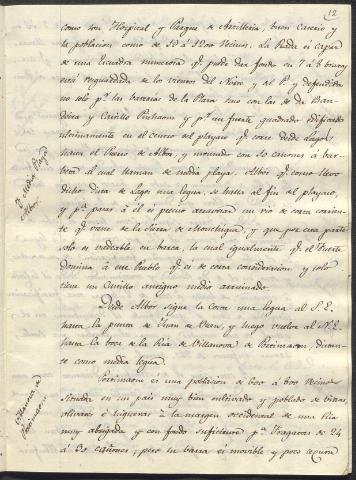 12
como son Hospital y Parque de Artilleria, buen Caserio y
la poblacion como de 10 á 1200 Vecinos. La Rada es capaz
de una Escuadra numerosa qe. puede dar fondo en 7 á 8 brazas
está resguardada de los vientos del Norte y al P. y defendida
no solo pr. las baterias de la Plaza sino con las de
y Castillo Pinhaon y pr. un fuerte quadrado edificado
ultimamente en el centro del playazo qe. corre desde Lagos
hasta el Puerto de Albor, y artillado con 50 cañones á bar-
beta al cual llaman de media playa. Albór qe. como llevo
dicho dista de Lagos una legua, se halla al fin del playazo,
y pa. pasar á él es preciso atravesar un rio de corta corrien-
te qe. viene de la Sierra de Monchique y que por esta parte
solo es vadeable en barca, la cual igualmente qe. el Fuerte
domina á este Pueblo qe. es de corta consideracion y solo
tiene un Castillo antiguo medio arruinado.
Desde Albór sigue la Costa una legua al S.E.
hasta la punta de Juan de Oren, y luego vuelve al N.E.
hasta la boca de la Ria de Villanova de Portimaon, distan-
te como media legua.
Portimaon es una poblacion de 600 á 800 Vecinos
situada en un pais muy bien cultivado y poblado de viñas,
olivares é higueras á la margen occidental de una Ria
muy abrigada y con fondo suficiente pa. Fragatas de 24
á 30 cañones; pero su barra es movible y poco segura
Fte. Media Playa
Albor.
Villanova de
Portimaon